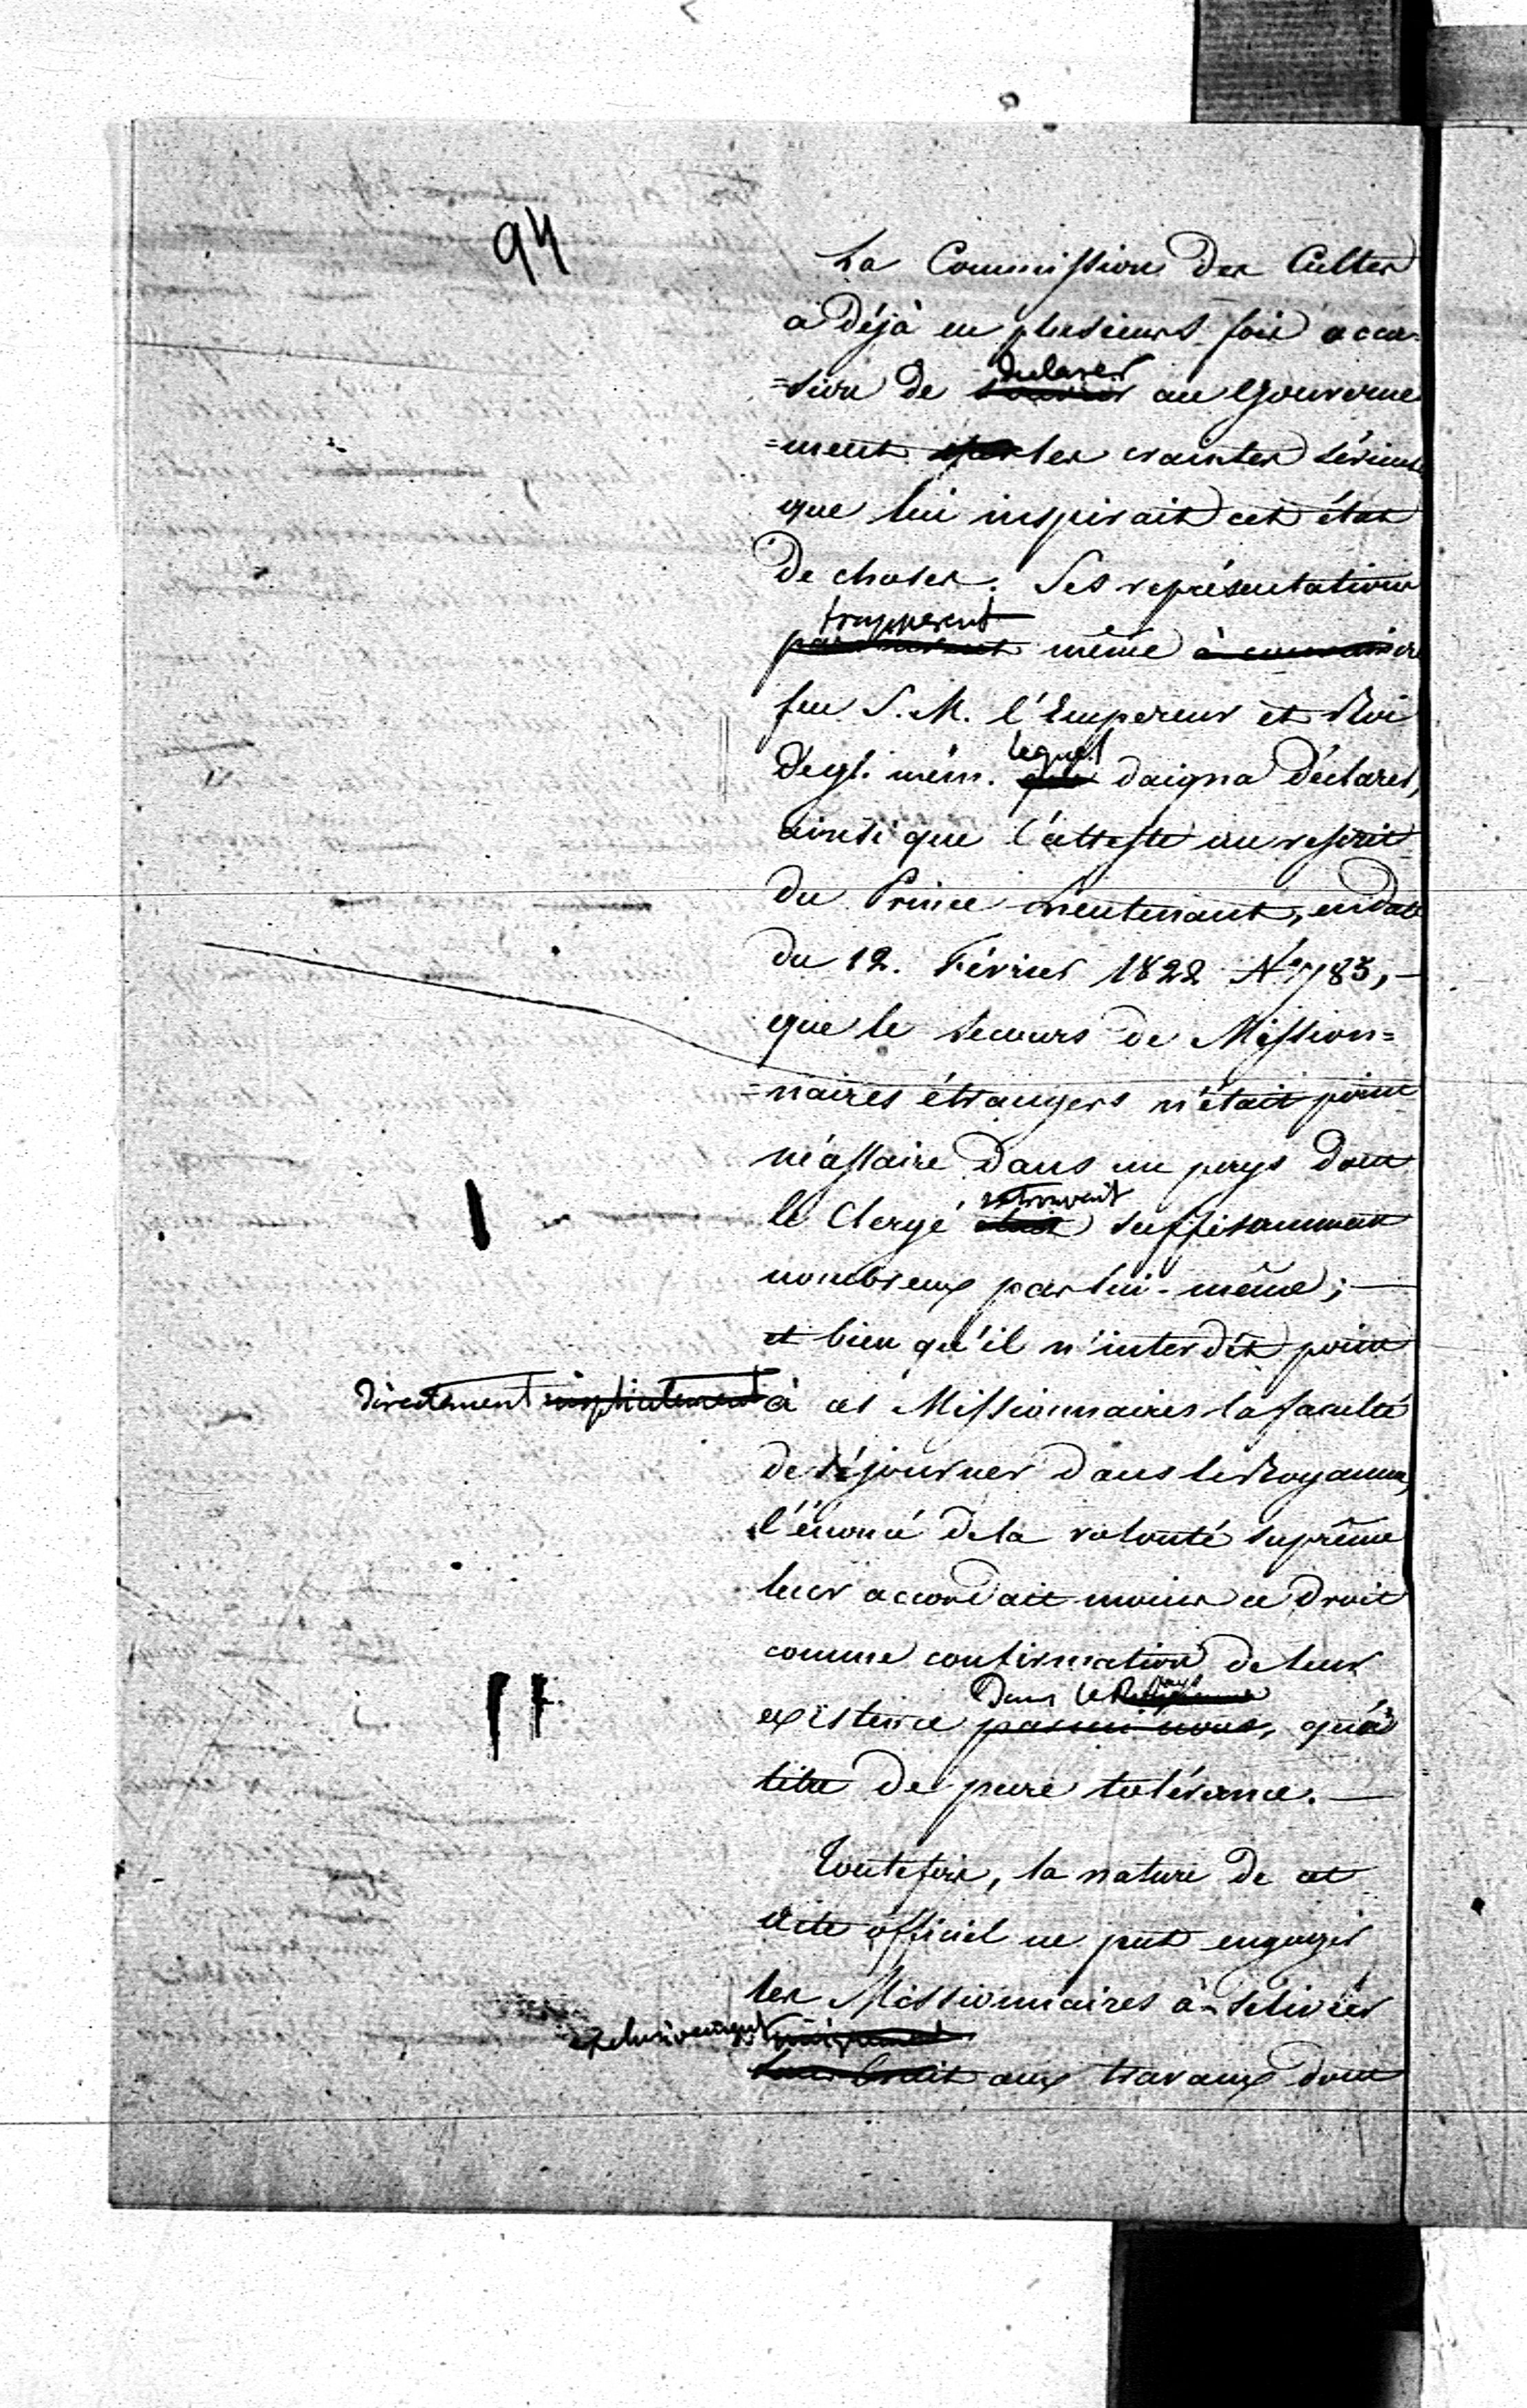 94
La Commission des Cultes
a déjà eu plusieurs fois occa-
=sion de declarer au Gouverne
=ment les craintes sérieuses
que lui inspirait cet état
de choses. Ses représentations
frapperent
même
feu S. M. l'Empereur et Roi
de gl. mém. lequel daigna déclarer,
ainsi que l'atteste un rescrit
du Prince Lieutenant, en date
du 12. Février 1822 N° 1783, —
que le secours de Mission=
=naires étrangers n'était point
nécessaire dans un pays dont
le Clergé se trouvait suffisamment
nombreux par lui-même; —
et bien qu'il n'interdit point
directement implicitement à ces Missionnaires la faculté
de séjourner dans le Royaume,
l'énoncé de la volonté suprême
leur accordait moins ce droit
comme confirmation de leur
dans le
existence parmi nous, qu'à
titre de pure tolérance. —
Toutefois, la nature de cet
acte officiel ne put engager
les Missionnaires à se livrer
exclusivement uniquement
aux travaux dont